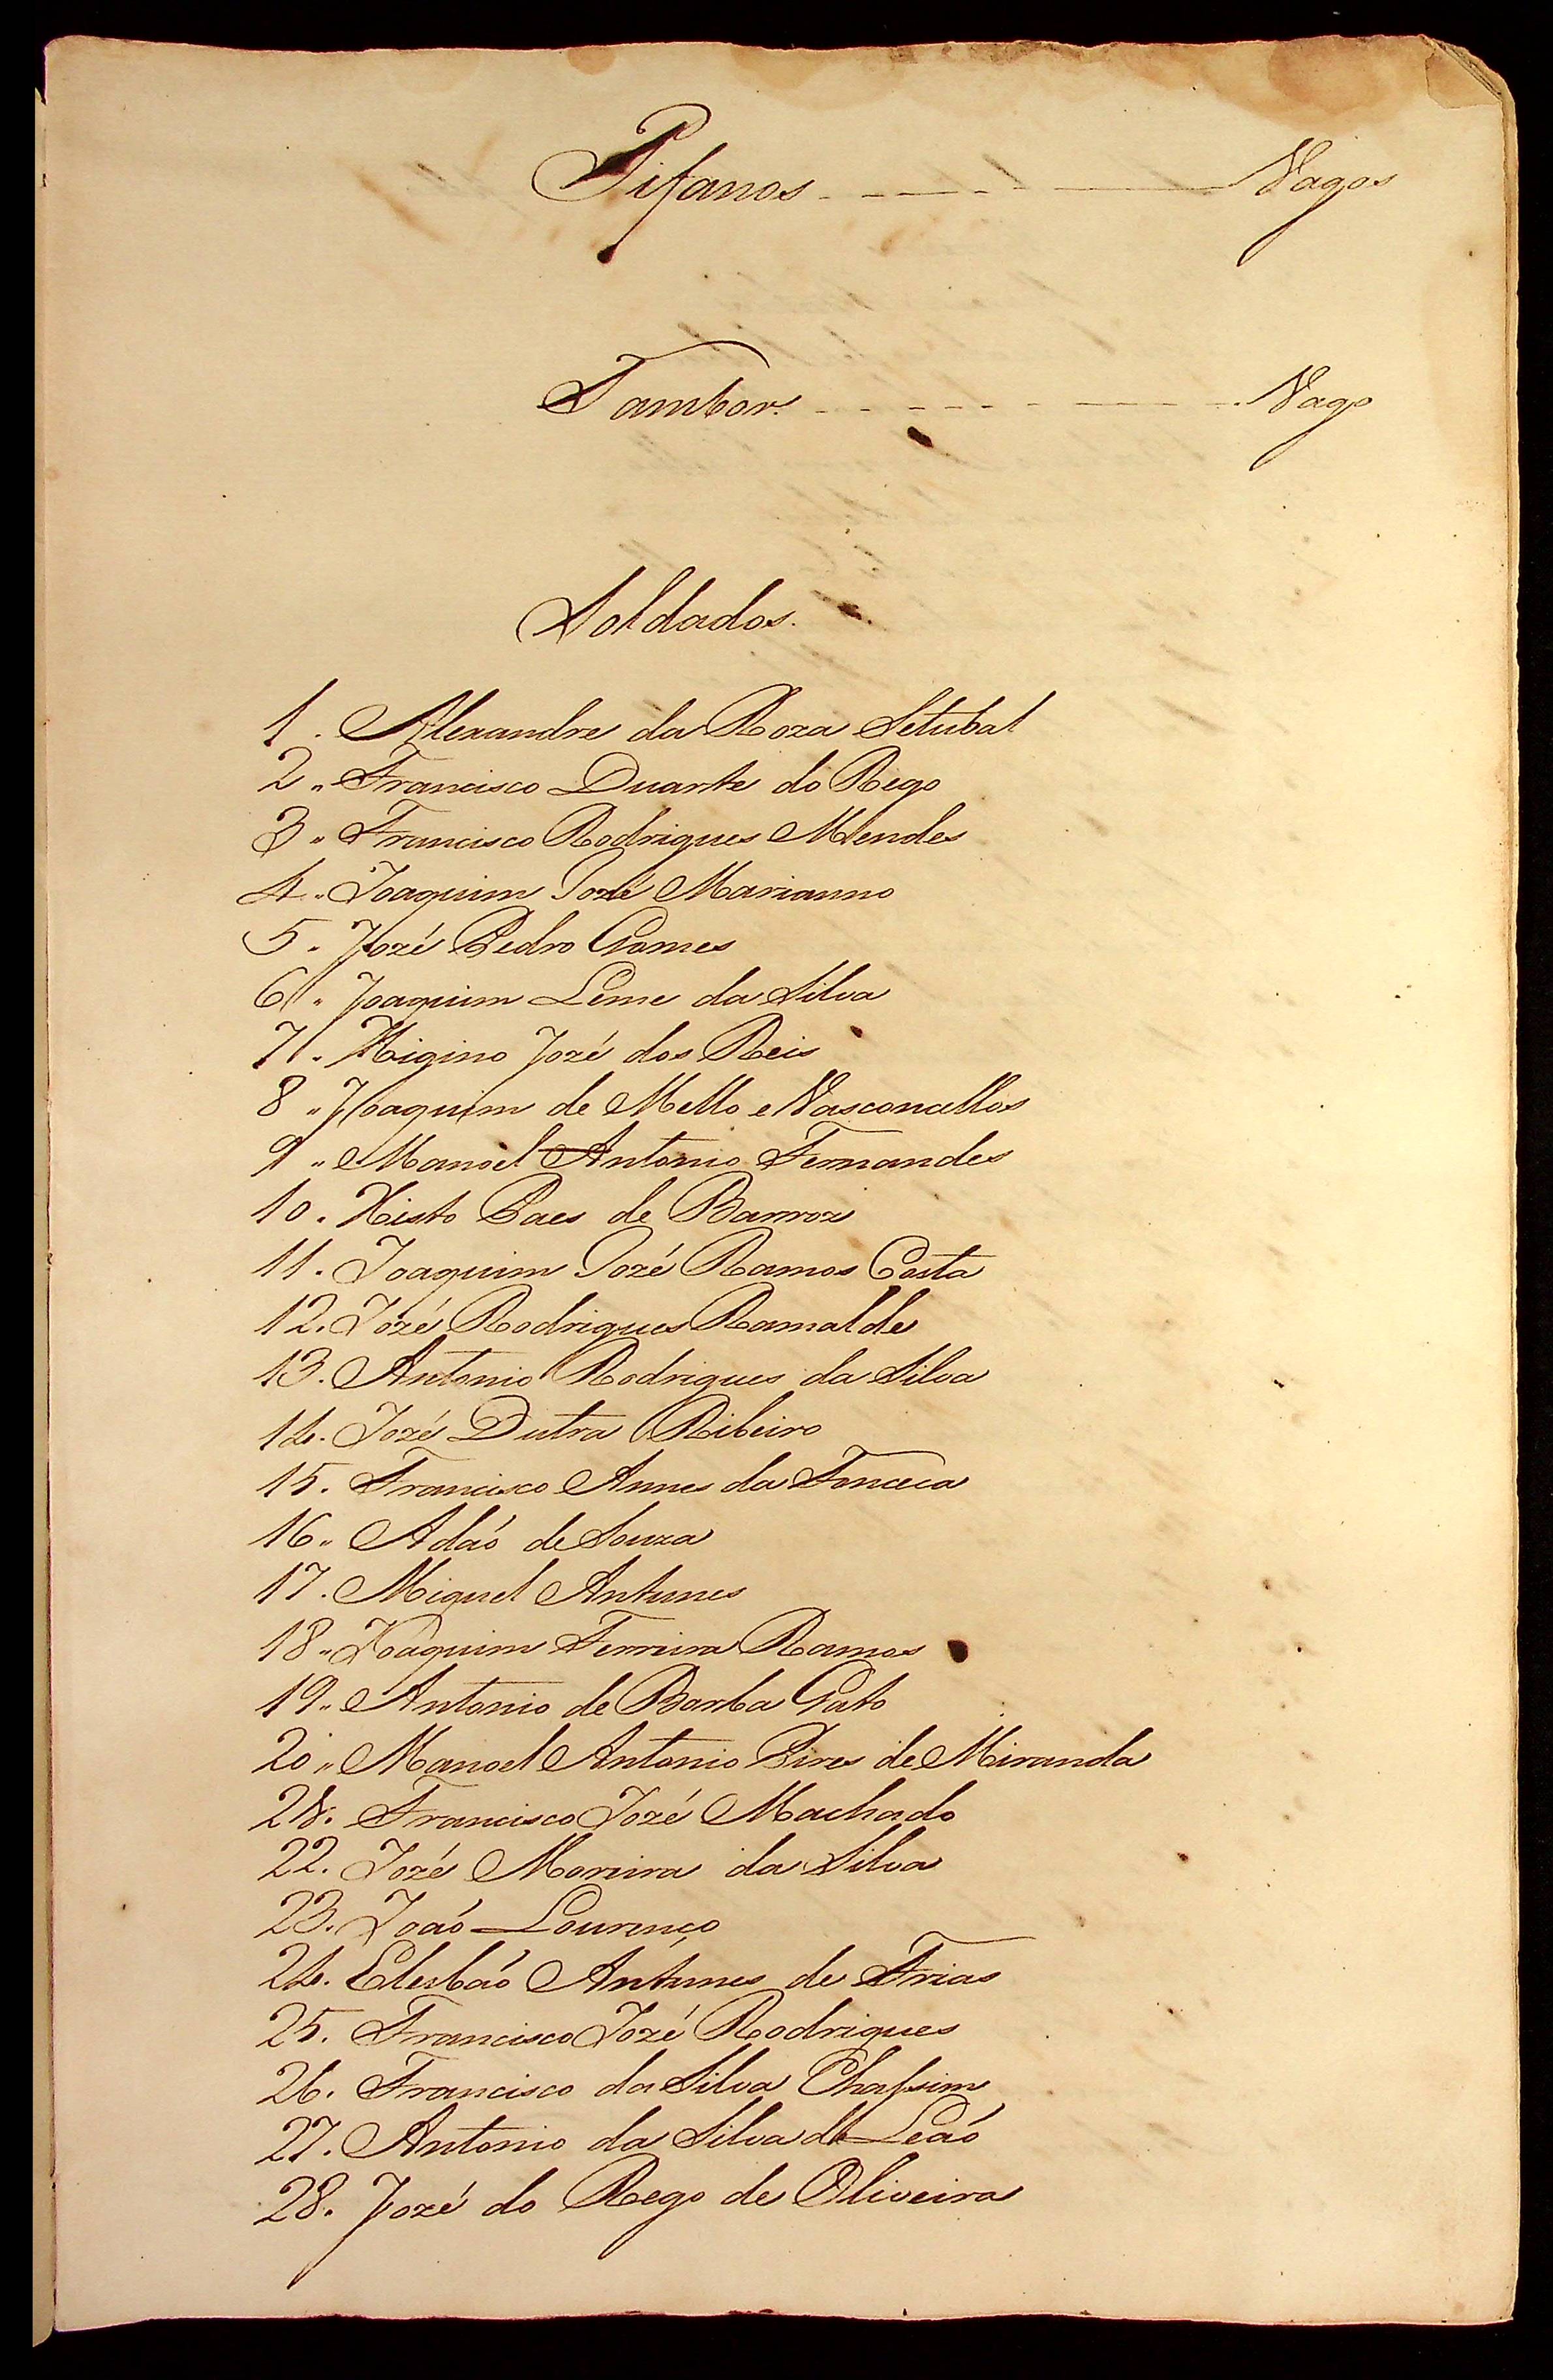 Pifanos - - - - - - Vagos
Tambor. - - - - - - - Vago
Soldados.
1. Alexandre da Roza Setubal
2 " Francisco Duarte do Rego
3 " Francisco Rodrigues Mendes
4 " Joaquim José Marianno
5 " Jozé Pedro Gomes
6 " Joaquim Leme da Silva
7 " Higino Jozé dos Reis
8 " Joaquim de Mello e Vasconcellos
9 " Manoel Antonio Fernandes
10 " Xisto Paes de Barros
11. Joaquim Jozé Ramos Costa
12. Jozé Rodrigues Ramalde
13. Antonio Rodrigues da Silva
14. Jozé Dutra Ribeiro
15. Francisco Annes da Fonceca
16 " Adaó de Souza
17. Miguel Antunes
18 " Joaquim Ferreira Ramos
19 " Antonio de Borba Gato
20 " Manoel Antonio Pires de Miranda
21. Francisco Jozé Machado
22. Jozé Moreira da Silva
23. Joaó Lourenço
24. Elesbaó Antunes de Frias
25. Francisco Jozé Rodrigues
26. Francisco da Silva Chassim
27. Antonio da Silva de Leaó
28. Jozé do Rego de Oliveira